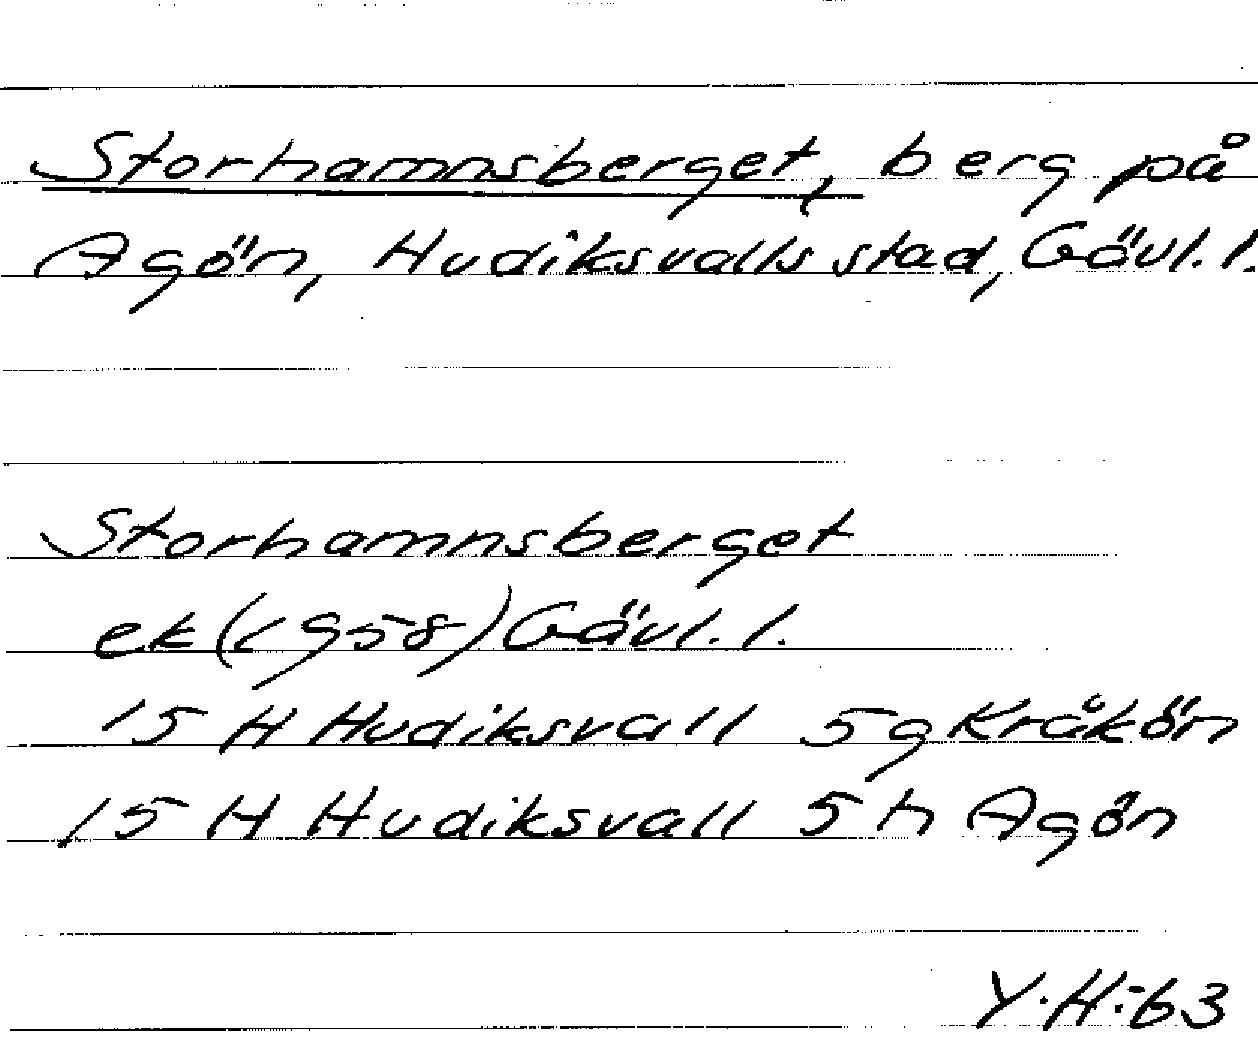 Storhamnsberget, berg på
Agön, Hudiksvalls stad, Gävl. l.
Storhamnsberget
ek (1958) Gävl. l.
15 H Hudiksvall 5 g Kråkön
15 H Hudiksvall 5 h Agön
Y.H:63